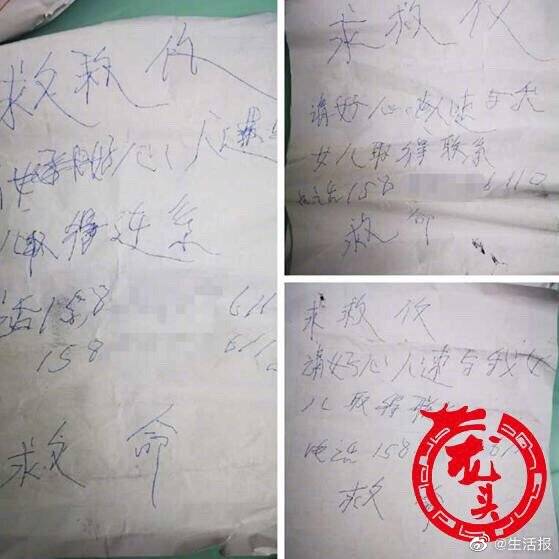 求救仪
好心人速与
儿取得连系
话158 611
158 6112
求救 命
求救仪
请好心人速与我
女儿取得联系
电话158 6112
救命
求救仪
请好心人速与我女
儿取得联
电话158 611
求救
龙头
@生活报